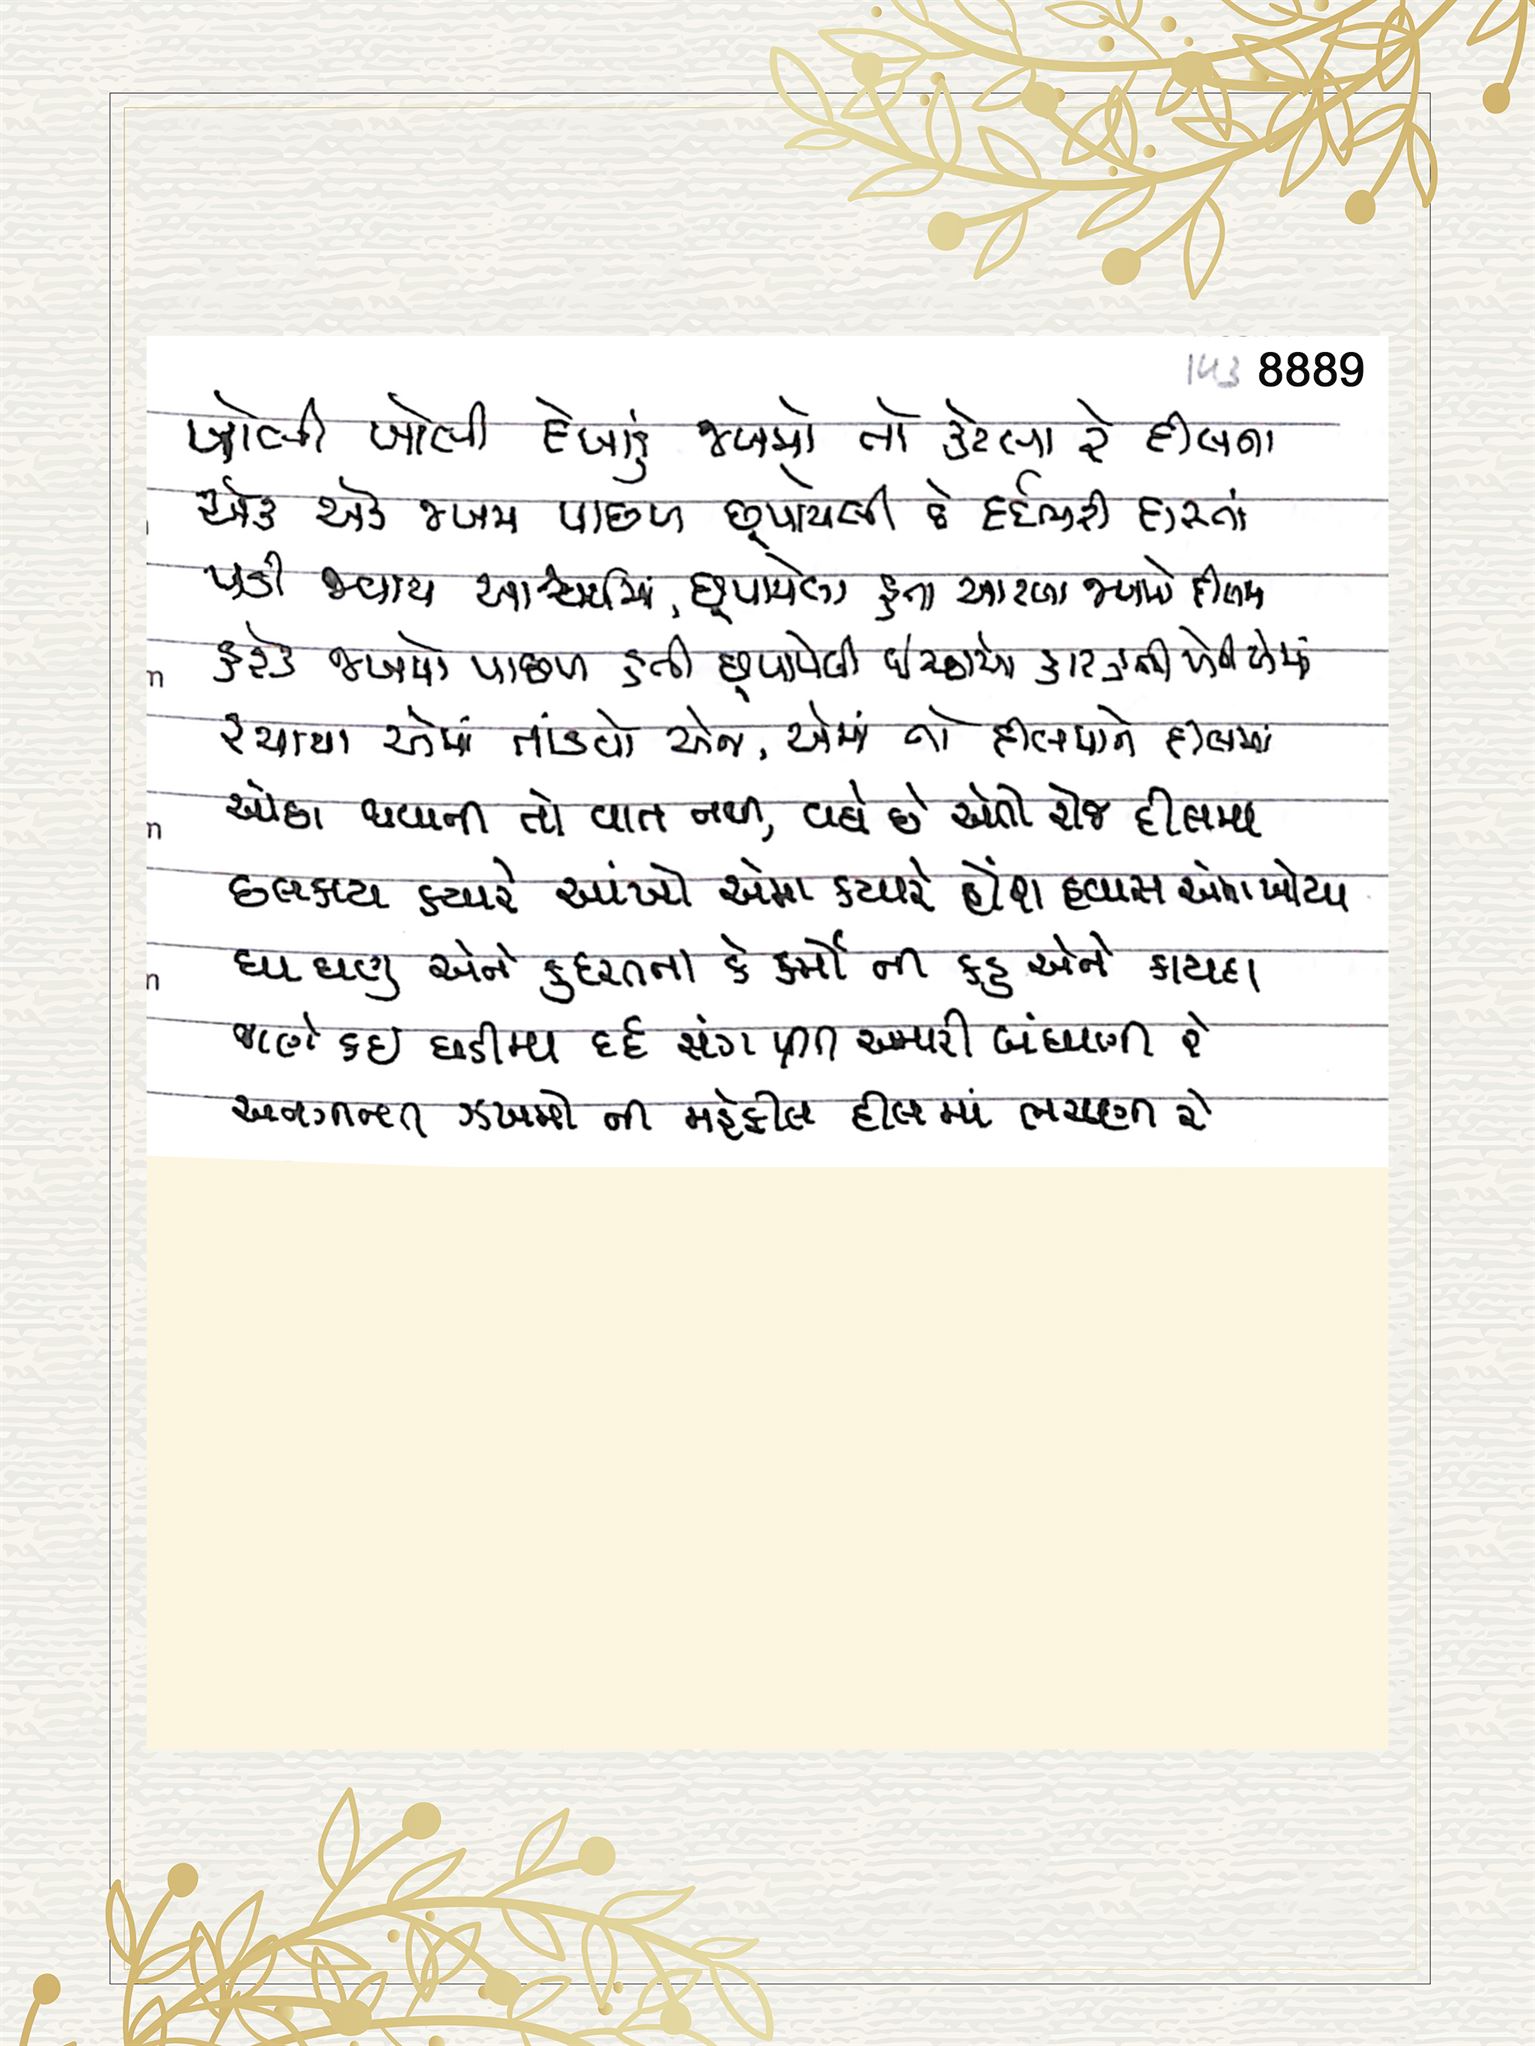 ૧૫૩ 8889
ખોલી ખોલી દેખાડું જખમો તો કેટલા રે દીલના
એક એક જખમ પાછળ છૂપાયેલી છે દર્દભરી દાસ્તાં
પડી જવાય આશ્ચર્યમાં, છૂપાયેલા હતા આટલા જખમો દીલમાં
દરેક જખમો પાછળ હતી છૂપાયેલી ઇચ્છાઓ
રચાયા એમાં તાંડવો એના, એમાં તો દીલ ને દીલમાં
ઓછા થવાની તો વાત નથી, વધે છે એતો રોજ દીલમાં
છલકાય ક્યારે આંખો એમા ક્યારે હોંશ હવાસ એમાં ખોવાય
ઘા ઘણુ એને કુદરતના કે કર્મો ની કહુ એને કાયદા
જાણે કઇ ઘડીમાં દર્દ સંગ પ્રીત અમારી બંધાણી રે
અનગીનત ઝખમો ની મહેફીલ દીલ માં ભરાણી રે